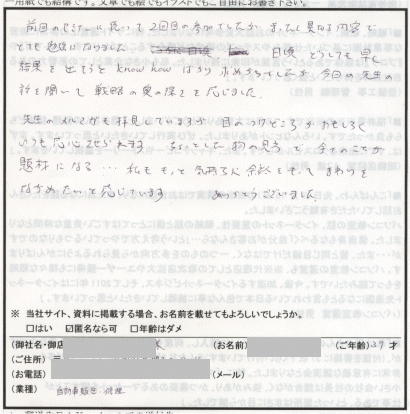 一用紙でも結構です。文章でも絵でもイラストでもご自由にお書き下さい。
前回のセミナーに続いて2回目の参加でしたが、まったく異なる内容で
とても勉強になりました 日頃 どうしても早く
結果を出そうと know how ばかり求めがちでしたが 今日の先生の
話を聞いて戦略の奥の深さを感じました。
先生のメルマガも拝見していますが 目のつけどころがおもしろく
いつも感心させられます ちょっとした物の見方で全てのことが
題材になる… 私ももっと気持ちに余裕をもってまわりを
ながめたいと感じています ありがとうございました。
※ 当社サイト、資料に掲載する場合、お名前を載せてもよろしいでしょうか。
□はい ☑匿名なら可 □年齢はダメ
(御社名・御店 (お名前) (ご年齢)37才
(ご住所)
(お電話) (メール)
(業種) 自動車販売・修理